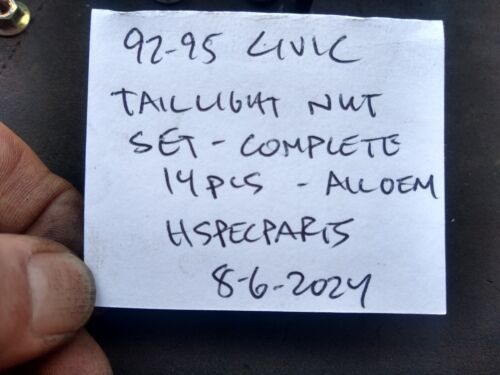 92-95 CIVIC
TAILLIGHT NUT
SET - COMPLETE
14 PCS - ALL OEM
HSPECPARTS
8-6-2024